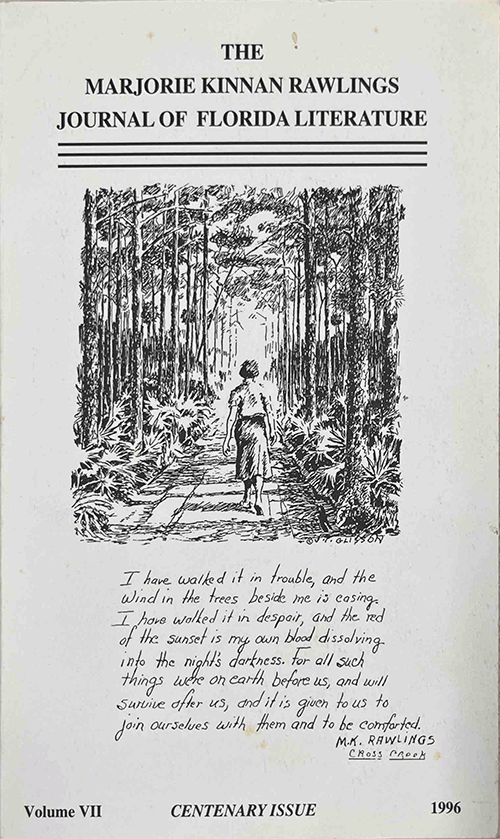 THE
MARJORIE KINNAN RAWLINGS
JOURNAL OF FLORIDA LITERATURE
© J.T. GLISSON
I have walked it in trouble, and the
wind in the trees beside me is easing.
I have walked it in despair, and the red
of the sunset is my own blood dissolving
into the night's darkness. For all such
things were on earth before us, and will
survive after us, and it is given to us to
join ourselves with them and to be comforted.
M.K. RAWLINGS
CROSS CREEK
Volume VII CENTENARY ISSUE 1996